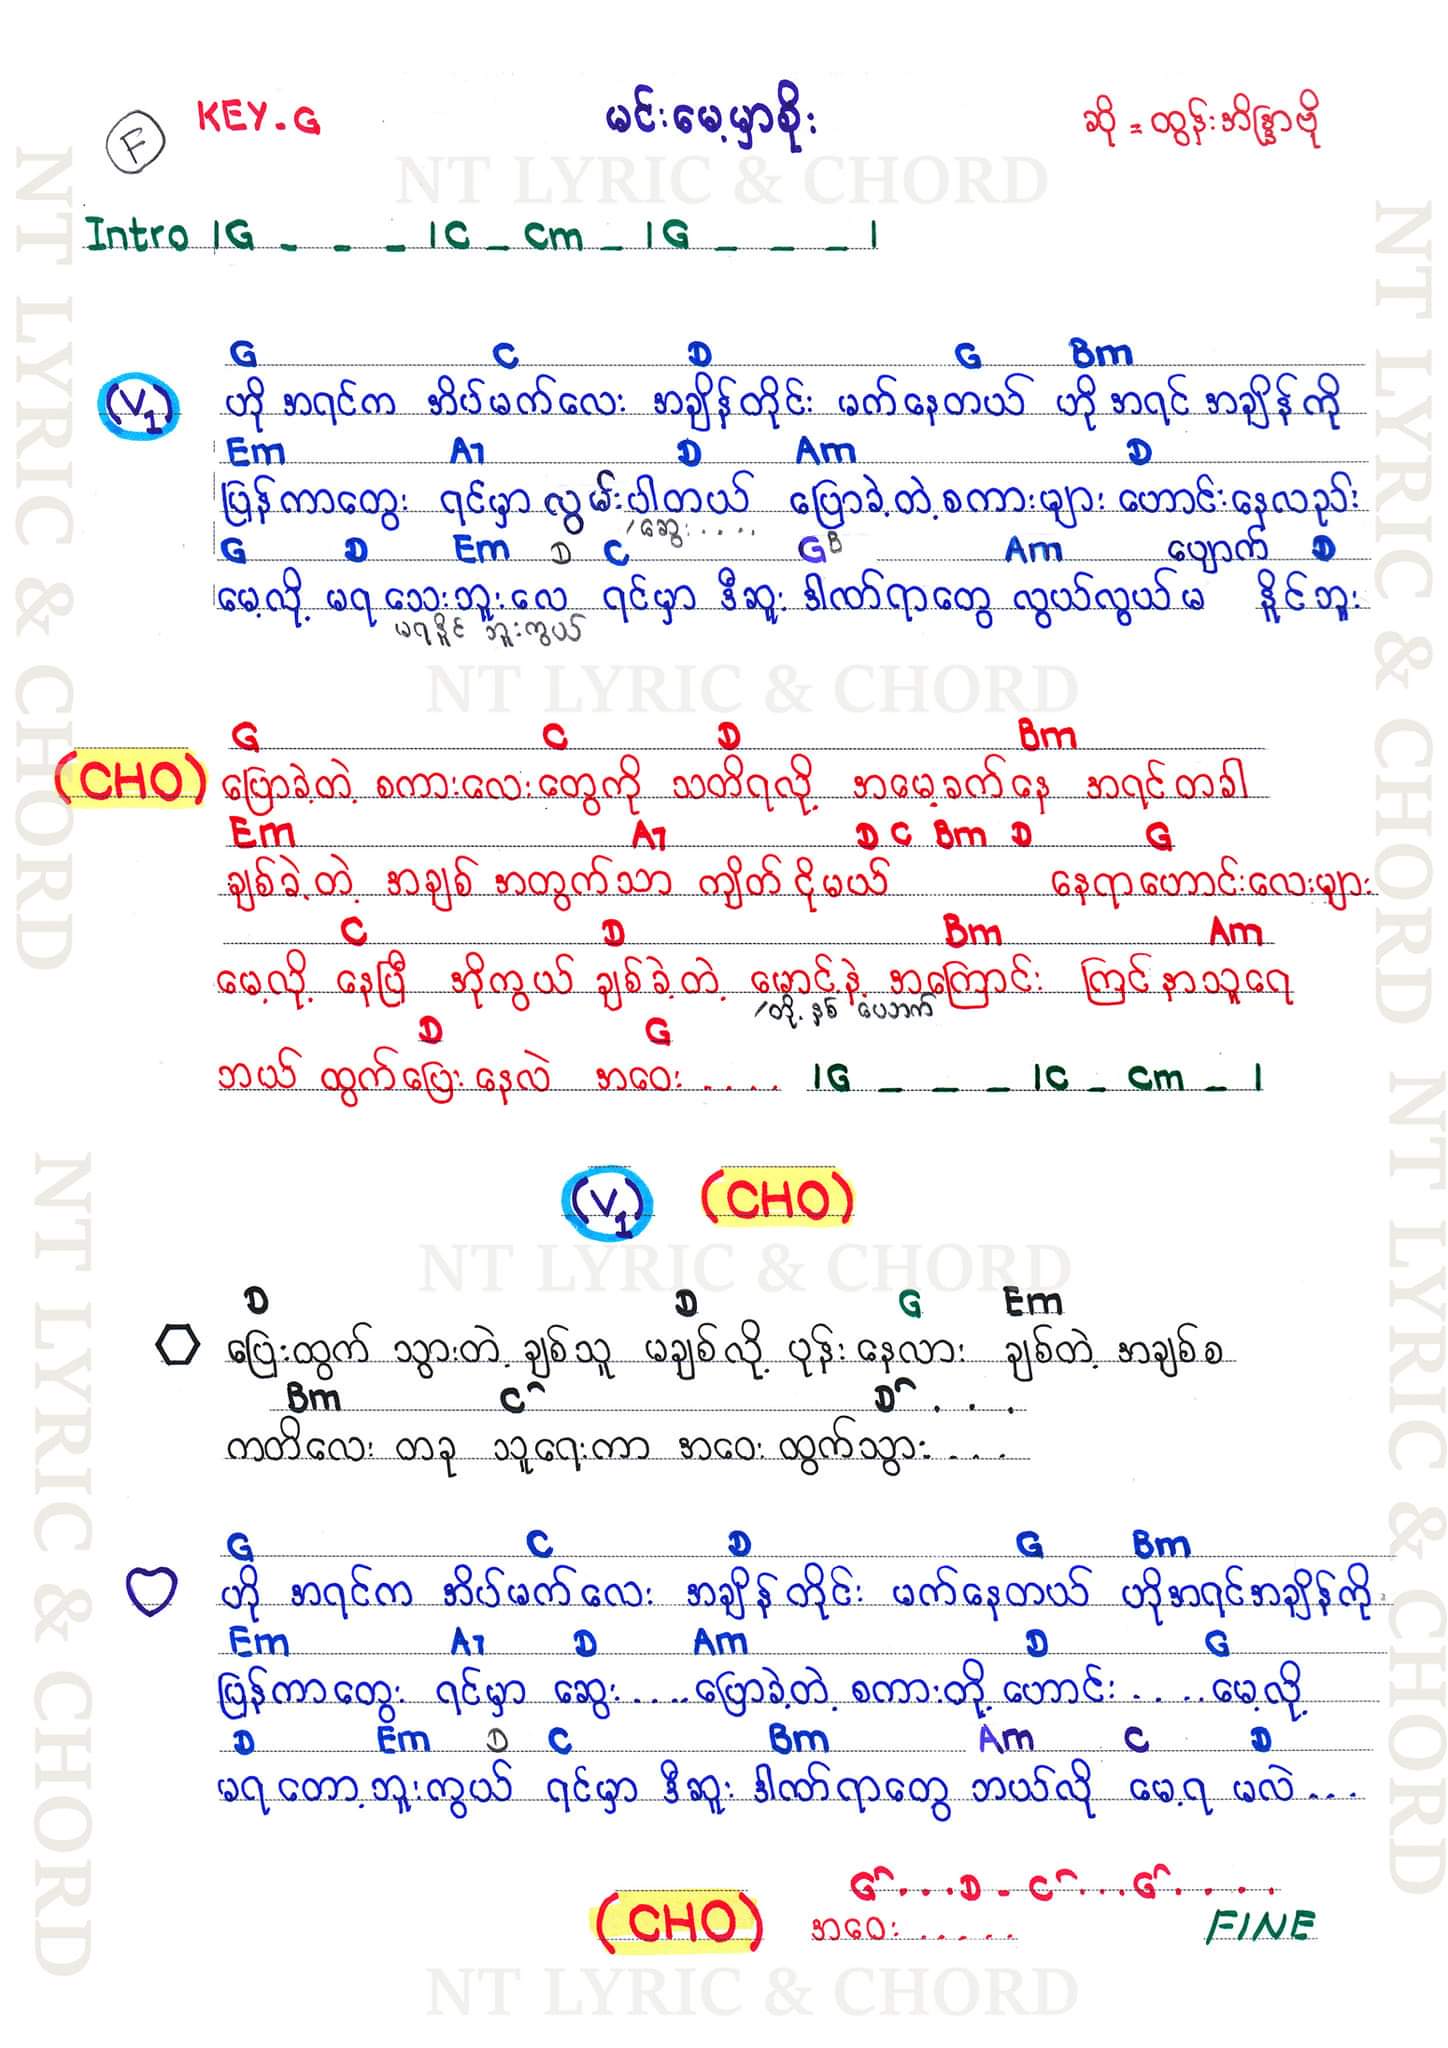 F KEY-G မင်းမေ့မှာစိုး ဆို = ထွန်းအိန္ဒြာဗို
NT LYRIC & CHORD
Intro |G _ _ _ |C _ Cm _ |G _ _ _ |
G C D G Bm
(V1) ဟို အရင်က အိပ်မက်လေး အချိန်တိုင်း မက်နေတယ် ဟို အရင် အချိန်ကို
Em A7 D Am D
ပြန်ကာတွေး ရင်မှာ လွမ်းပါတယ် ပြောခဲ့တဲ့စကားများ ဟောင်းနေလည်း
/ဆွေး.....
G D Em D C G B Am ပျောက် D
မေ့လို့ မရ သေးဘူးလေ ရင်မှာ ဒီဆူး ဒါဏ်ရာတွေ လွယ်လွယ်မ နိူင်ဘူး
မရနိူင် ဘူးကွယ်
NT LYRIC & CHORD
G C D Bm
(CHO) ပြောခဲ့တဲ့ စကားလေးတွေကို သတိရလို့ အမေ့ခက်နေ အရင်တခါ
Em A7 D C Bm D G
ချစ်ခဲ့တဲ့ အချစ် အတွက်သာ ကျိတ်ငိုမယ် နေရာဟောင်းလေးများ
C D Bm Am
မေ့လို့ နေပြီ အိုကွယ် ချစ်ခဲ့တဲ့ မောင့်နဲ့ အကြောင်း ကြင်နာသူရေ
/တို့နှစ် ယောက်
D G
ဘယ် ထွက်ပြေးနေလဲ အဝေး..... |G _ _ _ |C _ Cm _ |
(V1) (CHO)
NT LYRIC & CHORD
D D G Em
ပြေးထွက် သွားတဲ့ ချစ်သူ မချစ်လို့ ပုန်းနေလား ချစ်တဲ့ အချစ်စ
Bm C D....
ကတိလေး တခု သူရေးကာ အဝေး ထွက်သွား....
G C D G Bm
ဟို အရင်က အိပ်မက်လေး အချိန်တိုင်း မက်နေတယ် ဟိုအရင်အချိန်ကို
Em A7 D Am D G
ပြန်ကာတွေး ရင်မှာ ဆွေး.....ပြောခဲ့တဲ့ စကားတို့ ဟောင်း.....မေ့လို့
D Em D C Bm Am C D
မရတော့ဘူးကွယ် ရင်မှာ ဒီဆူး ဒါဏ်ရာတွေ ဘယ်လို မေ့ရ မလဲ...
G....D - C....G......
(CHO) အဝေး...... FINE
NT LYRIC & CHORD
NT LYRIC & CHORD
NT LYRIC & CHORD
NT LYRIC & CHORD
NT LYRIC & CHORD